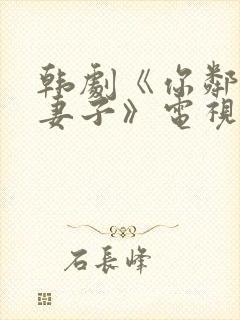 韩劇《你鄰
妻子》電視
石長峰